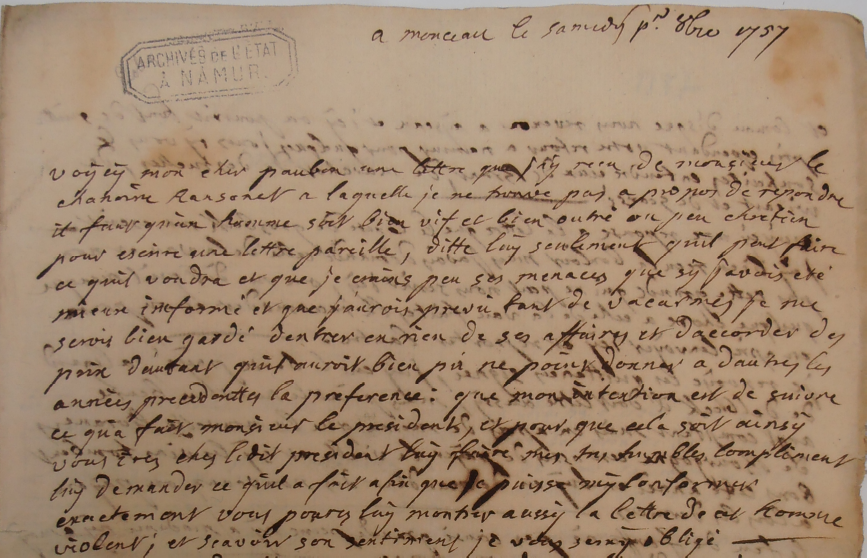 ARCHIVES DE L'ETAT
A NAMUR.
a monceau le samedy pr 8bre 1757
voyey mon cher paubon une lettre que j'ay recu de monsieur le
chanoine Ransonet a laquelle je ne trouve pas a propos de repondre
il faut qu'un homme soit bien vif et bien outré ou peu chretien
pour escrire une lettre pareille, ditte luy seulement qu'il peut faire
ce qu'il voudra et que je crains peu ses menaces que sy j'avois été
mieux informé et que j'aurois prevu tant de vacarmes je me
serois bien gardé d'entrer en rien de ses affaires et d'accorder des
prix d'autant qu'il auroit bien pu ne point donner a d'autres les
années precedentes la preference: que mon intention est de suivre
ce qu'a fait monsieur le president, et pour que cela soit ainsy
vous irez chez ledit president luy faire mes tres humbles compliment
luy demander ce qu'il a fait afin que je puisse my conformer
exactement vous poures luy montrer aussy la lettre de cet homme
violent; et scavoir son sentiment je vous seray obligé